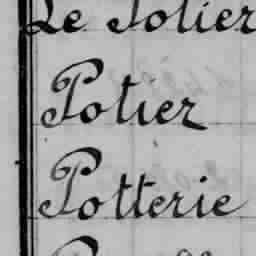 Le Potier
Potier
Potterie